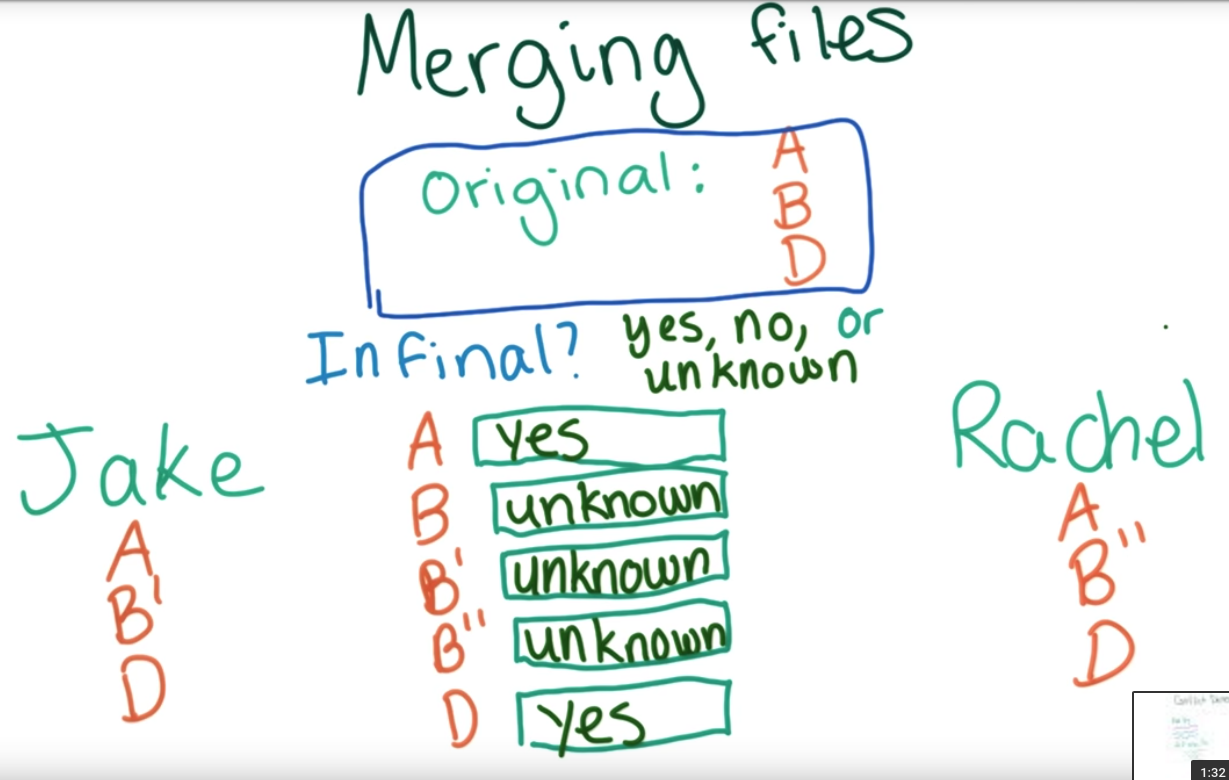 Merging files
Original: A
B
D
In final? yes, no, or
unknown
Jake
A
B'
D
A yes
B unknown
B' unknown
B'' unknown
D yes
Rachel
A
B''
D
1:32